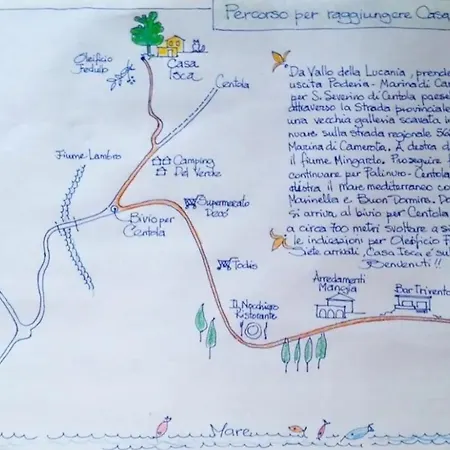 Percorso per raggiungere Casa
Oleificio
Fedullo
Casa
Isca
Centola
Da Vallo della Lucania, prende
uscita Poderia - Marina di Ca
per S. Severino di Centola paese
attraverso la Strada provinciale
una vecchia galleria scavata in
nuare sulla strada regionale 56
Marina di Camerota. A destra d
il fiume Mingardo. Proseguire f
continuare per Palinuro - Centola
destra il mare mediterraneo co
Marinella e Buon Dormire. Do
si arriva al bivio per Centola
a circa 700 metri svoltare a s
le indicazioni per Oleificio F
Siete arrivati, Casa Isca e' su
Benvenuti!!
Fiume Lambro
Camping
Del Verde
Supermercato
Decò
Bivio per
Centola
Todis
Il Nocchiero
Ristorante
Arredamenti
Mangia
Bar Trivento
Mare